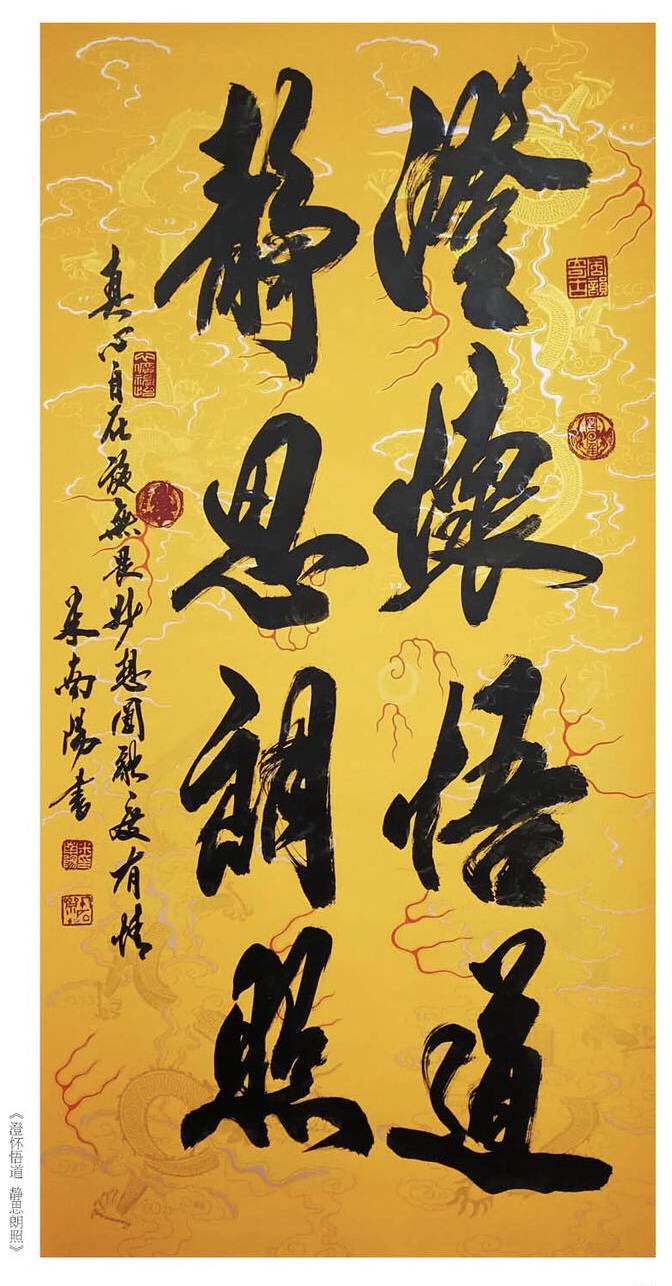 澄懷悟道
靜思朗照
真心自在無畏妙想圓融有情
朱南陽書
《澄怀悟道 静思朗照》